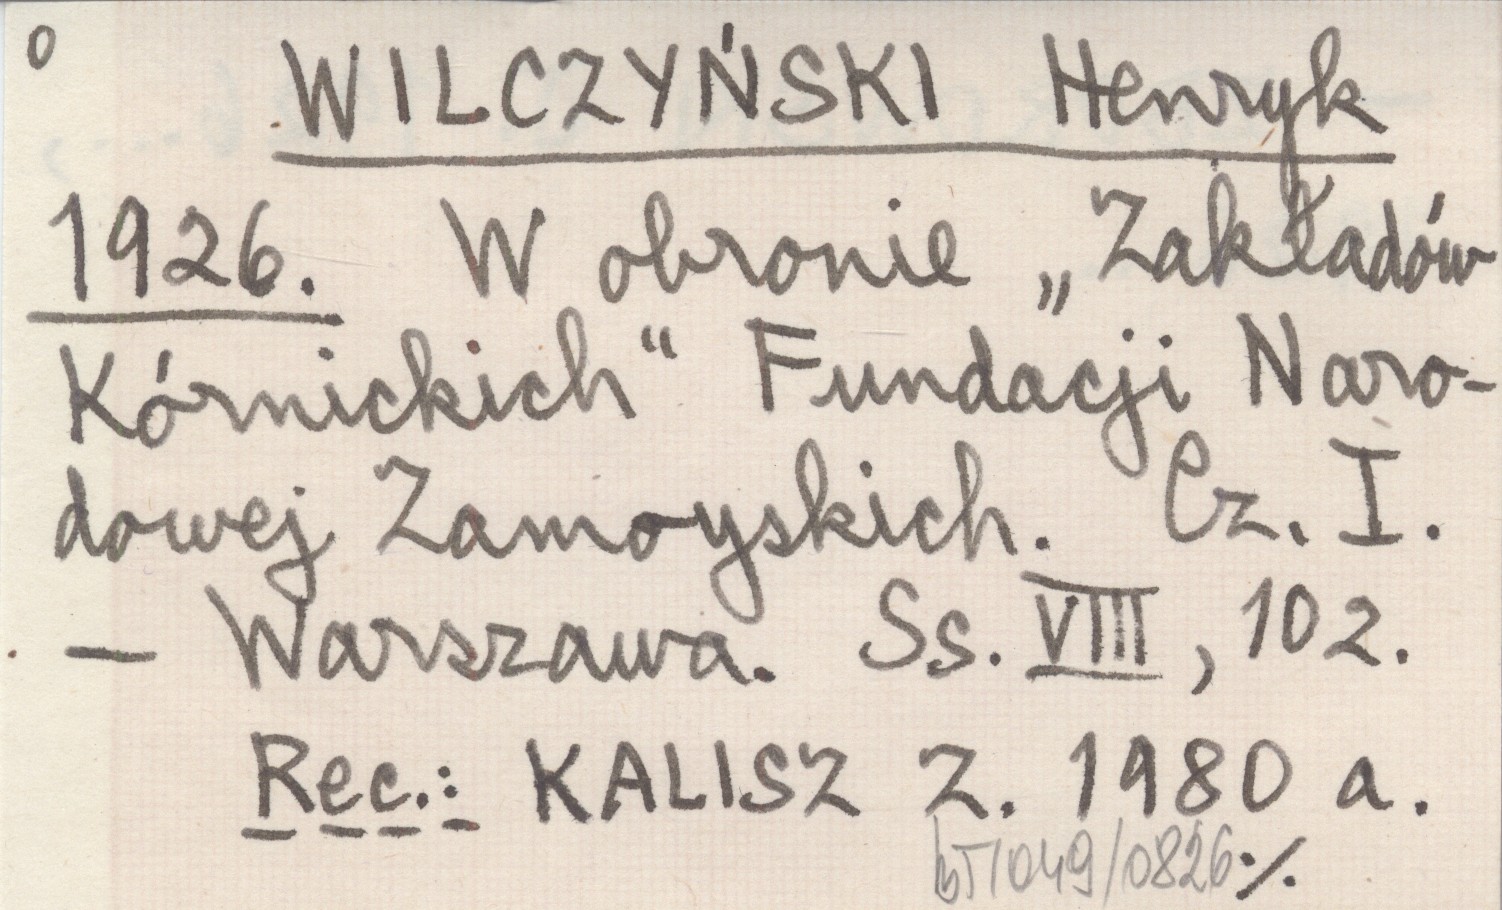 0
WILCZYŃSKI Henryk
1926. W obronie „Zakładów
Kórnickich“ Fundacji Naro-
dowej Zamoyskich. Cz. I.
— Warszawa. Ss. VIII, 102.
Rec.: KALISZ Z. 1980 a.
bT/049/0826 ·/.